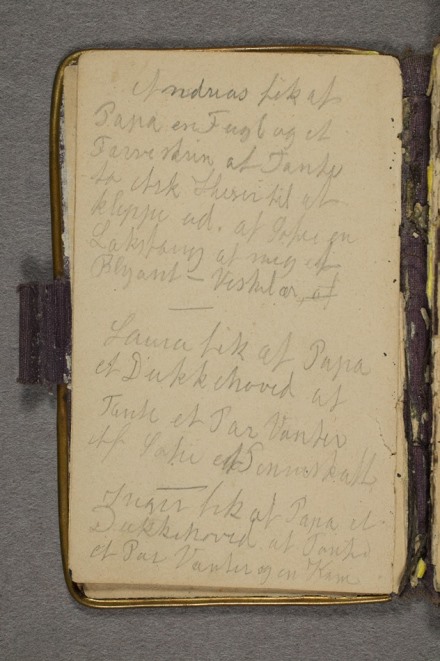 Andreas fik af
Papa en Fugl og et
Farveskrin af Tante
to Ark til at
klippe ud. af Sofie en
af mig et
Blyant – Viskelær, af
Laura fik af Papa
et Dukkehoved af
Tante et Par Vanter
af Sofie en
Inger fik af Papa et
Dukkehoved af Tante
et Par Vanter og en Kam